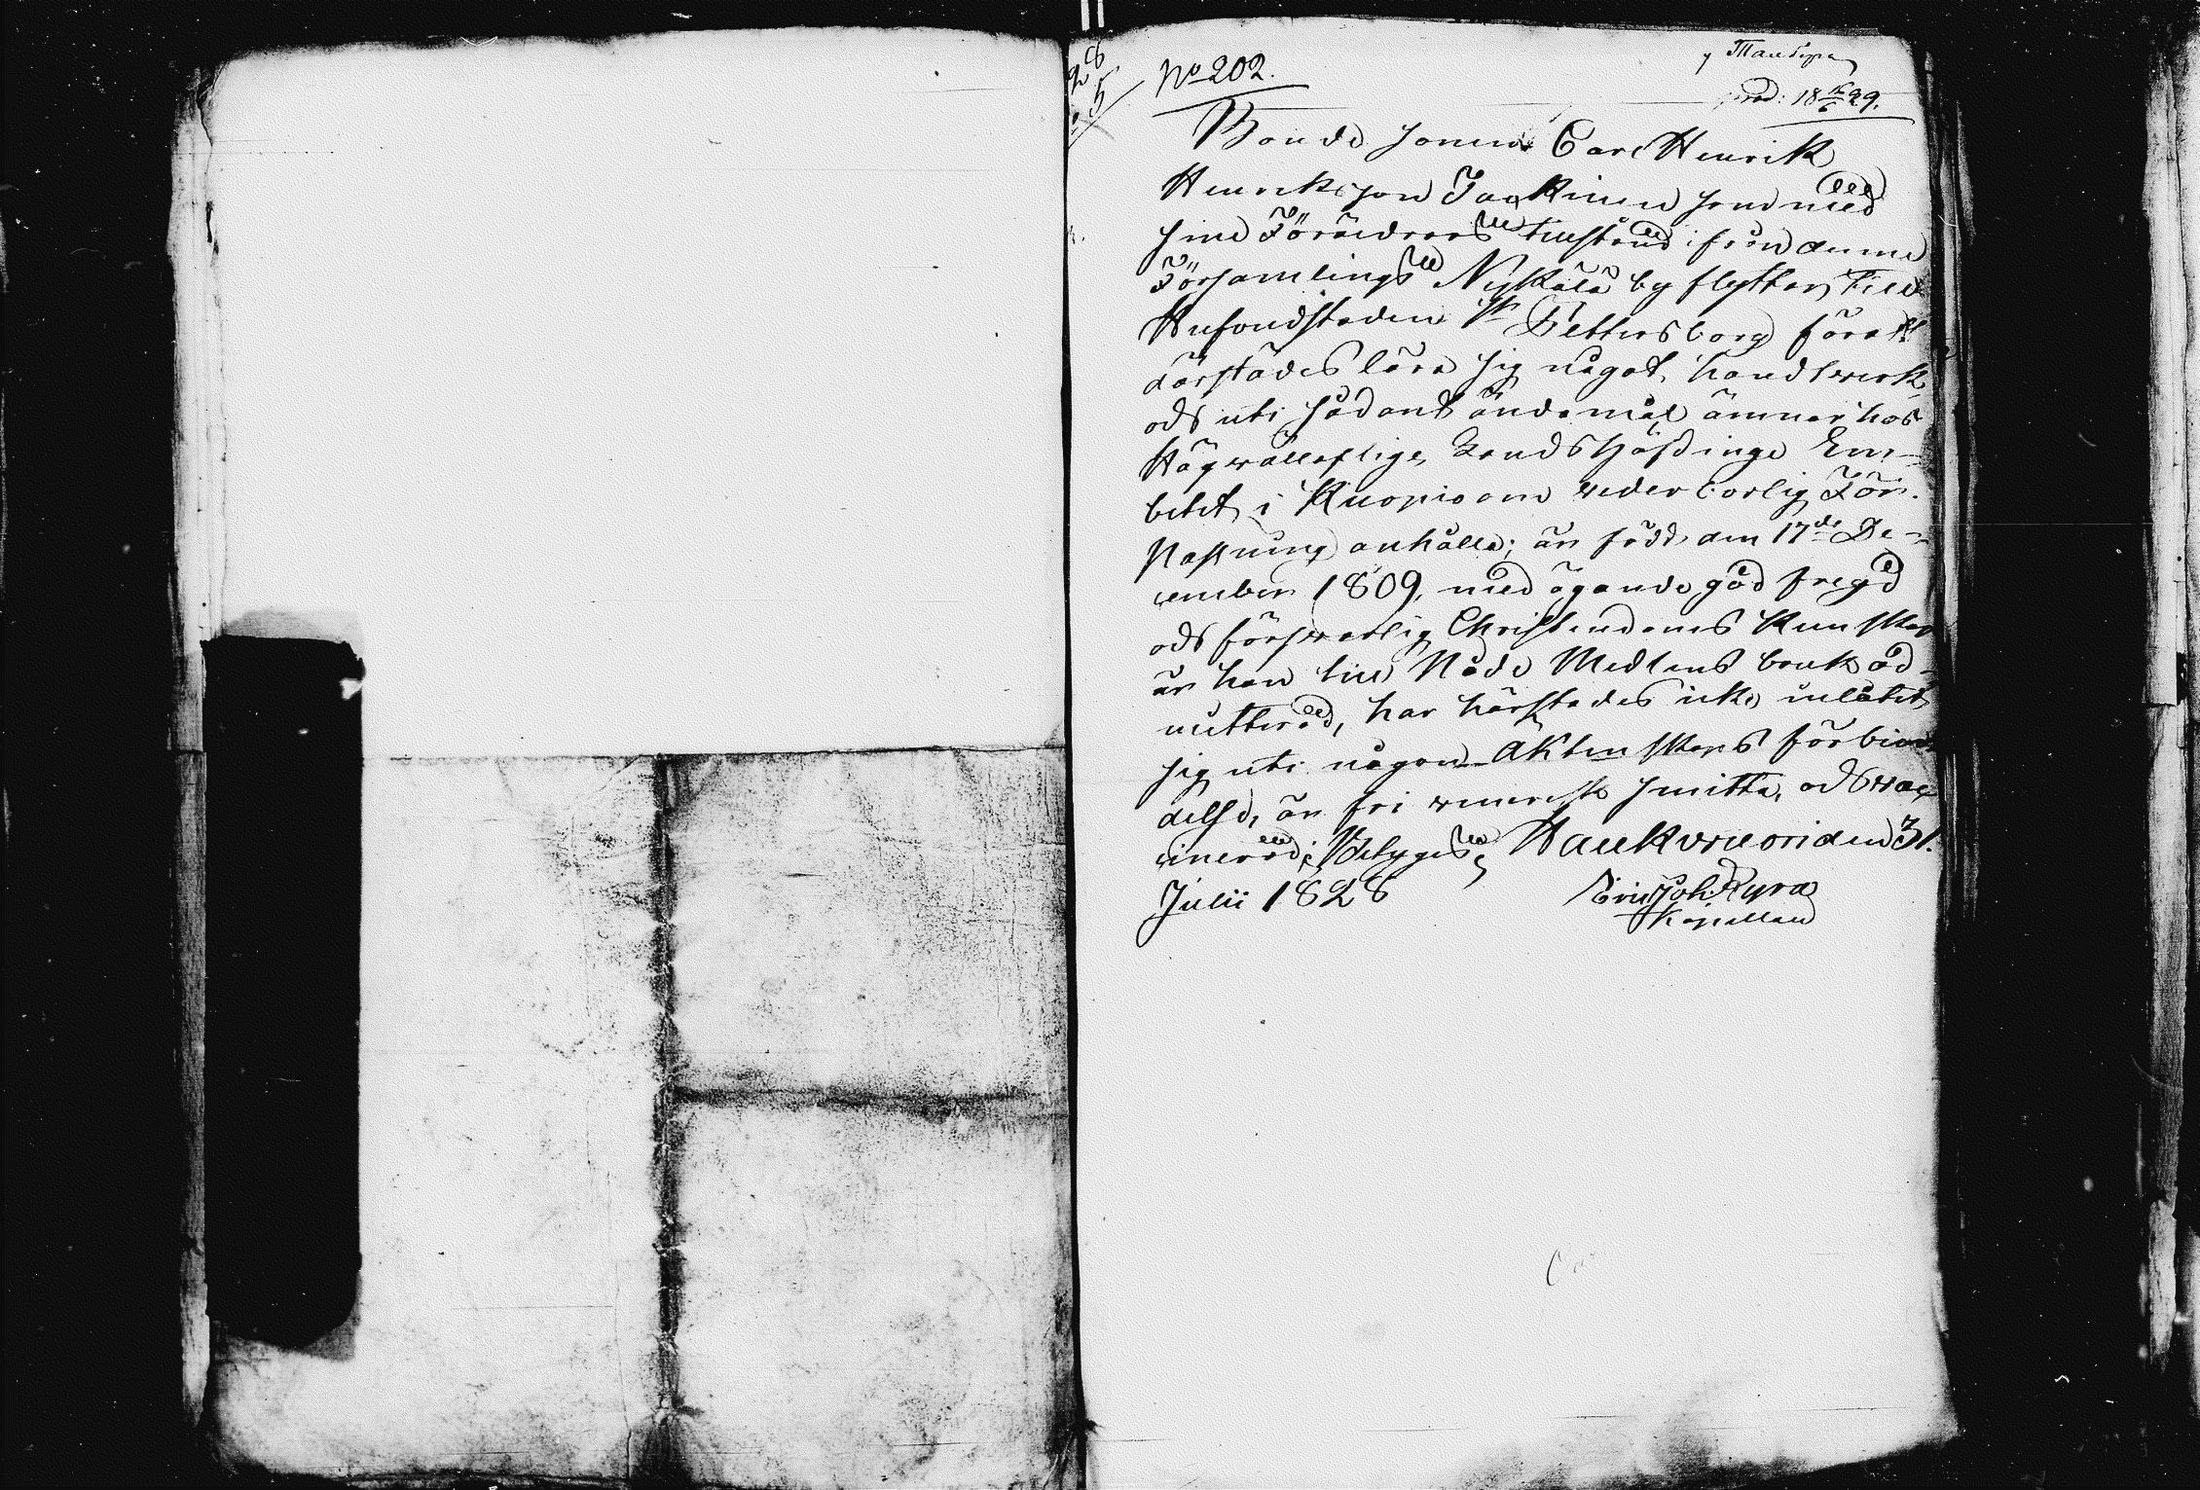 No 202.
prod: 18 16/6 29.
Bonde Sonen Carl Henrik
Henriksson Jaakinen som med
sine Föräldrars tillstånd ifrån denne
Församlings Nykälä by flyttar till
Hufvudstaden St Pettersborg för att
därstädes lära sig något handtverk
och uti sådant ändamål ämnar hos
Högvälloflige Landshöfdinge Em-
betet i Kuopio om vederbörlig För-
Passning anhålla; är född den 17de De-
cember 1809, med ägande god fregd
och försvarlig Christendoms Kunskap
är han till Nåde Medlens bruk ad-
mitterad, har härstädes icke inlåtit
sig uti någon Äktenskaps förbin-
delse, är fri venerisk smitta, och vac-
cinerad; Betygas, Haukivuori den 31.
Julii 1828
Joh: Kyra
Kapellan